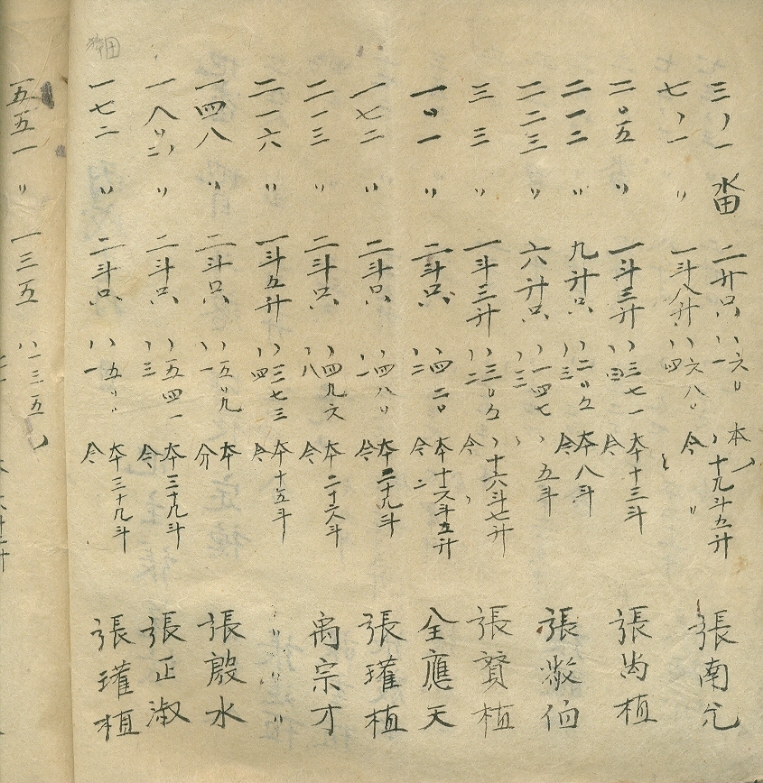 三ノ一 畓 二斗只 六〃 一 本 十九斗五升 張南允
七ノ一 〃 一斗八升 六八〃 四 今 〃
二〇五 〃 一斗三升 三七一 四 本十三斗 今 張尚植
二一二 〃 九升只 二〇五 三 本八斗 今
二二三 〃 六升只 一四七 三 五斗 張敞伯
三三 〃 一斗三升 三〇五 二 十六斗七升 今 張贇植
一〇一 〃 二斗只 四二〇 二 本十六斗五升 今 二 全應天
一七二 〃 二斗只 四八〇 一 本二十九斗 今 張瓘植
二一三 〃 二斗只 四九六 八 本二十六斗 今 禹宗才
二一六 〃 一斗五升 三七三 四 本十五斗 今 〃 〃 〃
一四八 〃 二斗只 五〃九 一 本 分 張殷水
一八〃二 〃 二斗只 五四一 三 本三十九斗 今 張正淑
一七二 〃 二斗只 五〃〃 一 本三十九斗 今 張瓘植
五五一 〃 一三五 〃 一三五